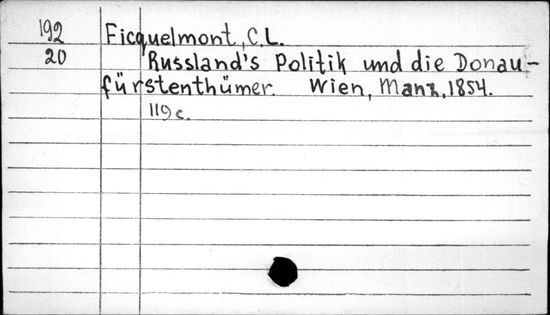 192 Ficquelmont, C. L.
20 Russland's Politik und die Donau-
fürstenthümer. Wien, Manz, 1854.
119 c.